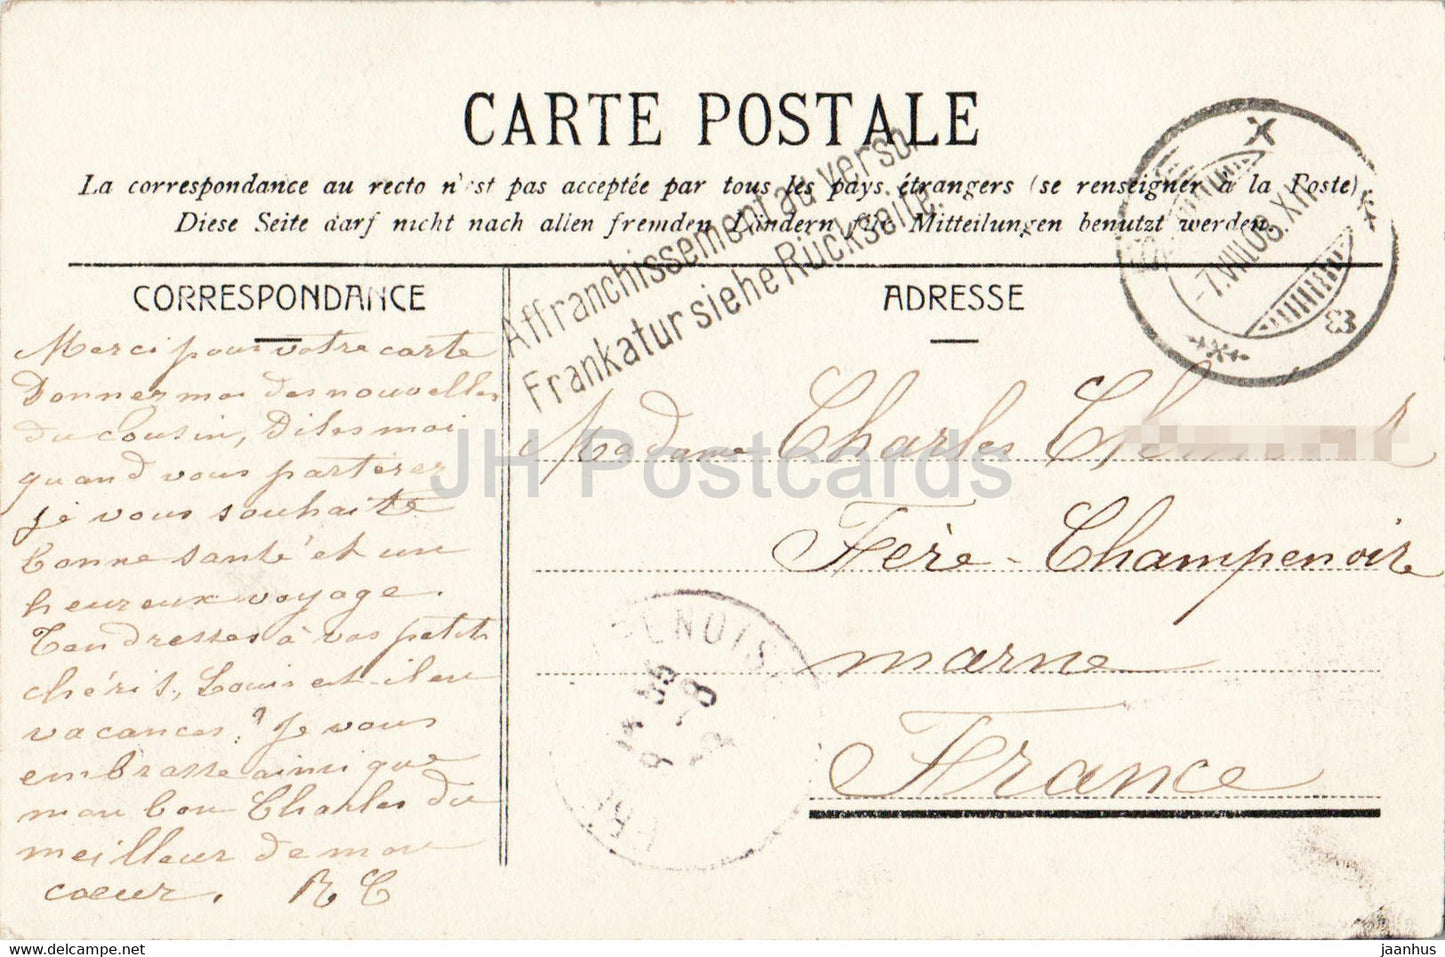 CARTE POSTALE
La correspondance au recto n'est pas acceptée par tous les pays étrangers (se renseigner à la Poste)
Diese Seite darf nicht nach allen fremden Ländern für Mitteilungen benutzt werden.
Affranchissement au verso.
Frankatur siehe Rückseite.
-7.VIII.08.XII
CORRESPONDANCE
Merci pour votre carte
Donner moi des nouvelles
du cousin, Dites moi
quand vous parterez
je vous souhaite
bonne santé et un
heureux voyage.
Tendresses à vos petits
chéris, Louis est il en
vacances? Je vous
embrasse ainsi que
mon bon Charles du
meilleur de mon
coeur. R C
ADRESSE
Madame Charles
Fère-Champenoise
marne
France
PENOIS
JH Postcards
www.delcampe.net
jaanhus